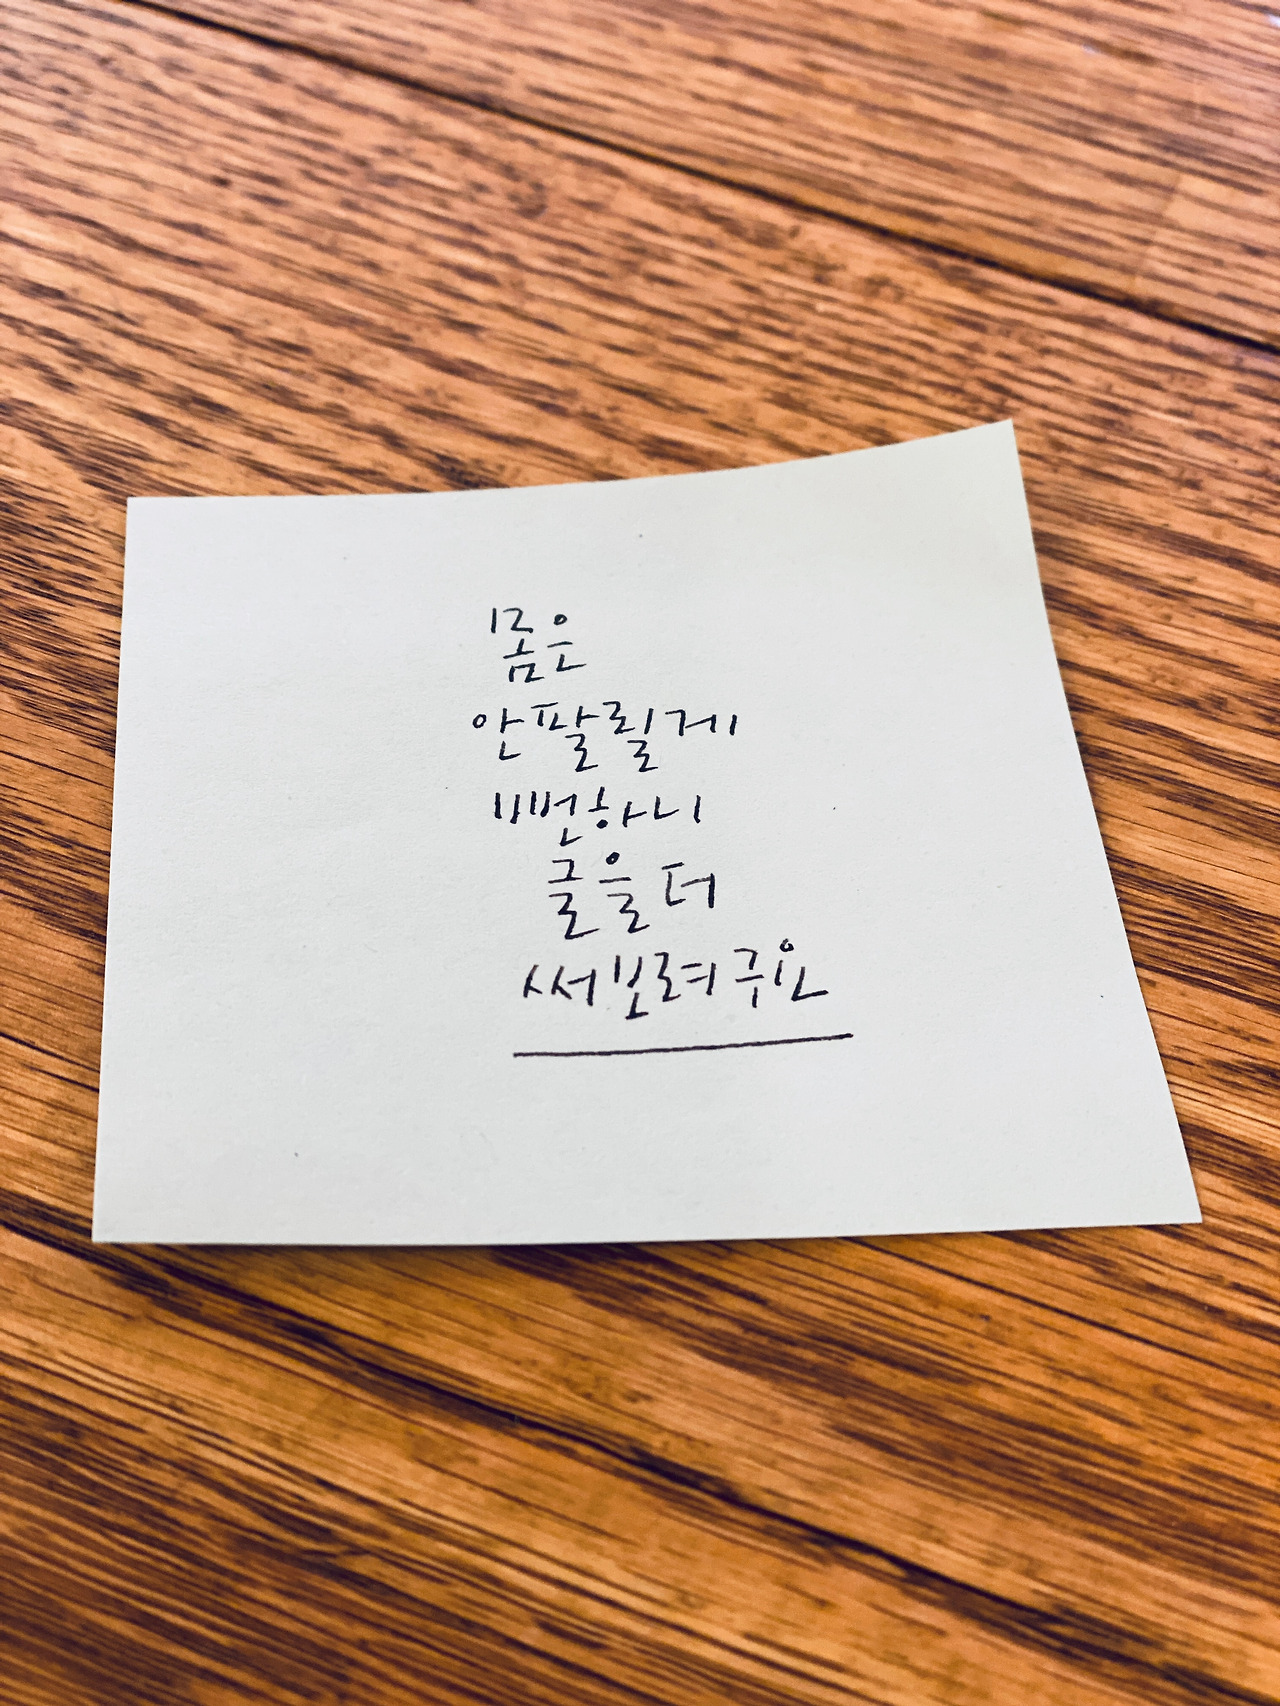 몸은
안팔릴게
뻔하니
글을 더
써보려구요